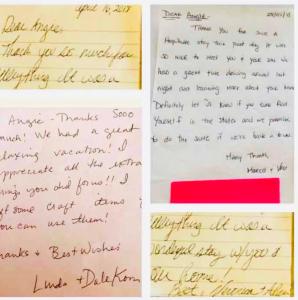 April 16, 2018
Dear Angie,
Thank you so much for
everything it was a
Angie - Thanks Sooo
much! We had a great
relaxing vacation! I
appreciate all the extra
things you did for us!! I
left some craft items
you can use them!
Thanks + Best Wishes
Linda + Dale
Dear Angie
Thank you for such a
stay this past
so nice to meet you & your son We
had a great time driving around last
night and learning more about your
Definitely let us know if you ever find
yourself in the States and we promise
to do the same if we're back in town
Many Thanks,
Marco +
everything it was a
wonderful stay w/you &
your home!
Best,